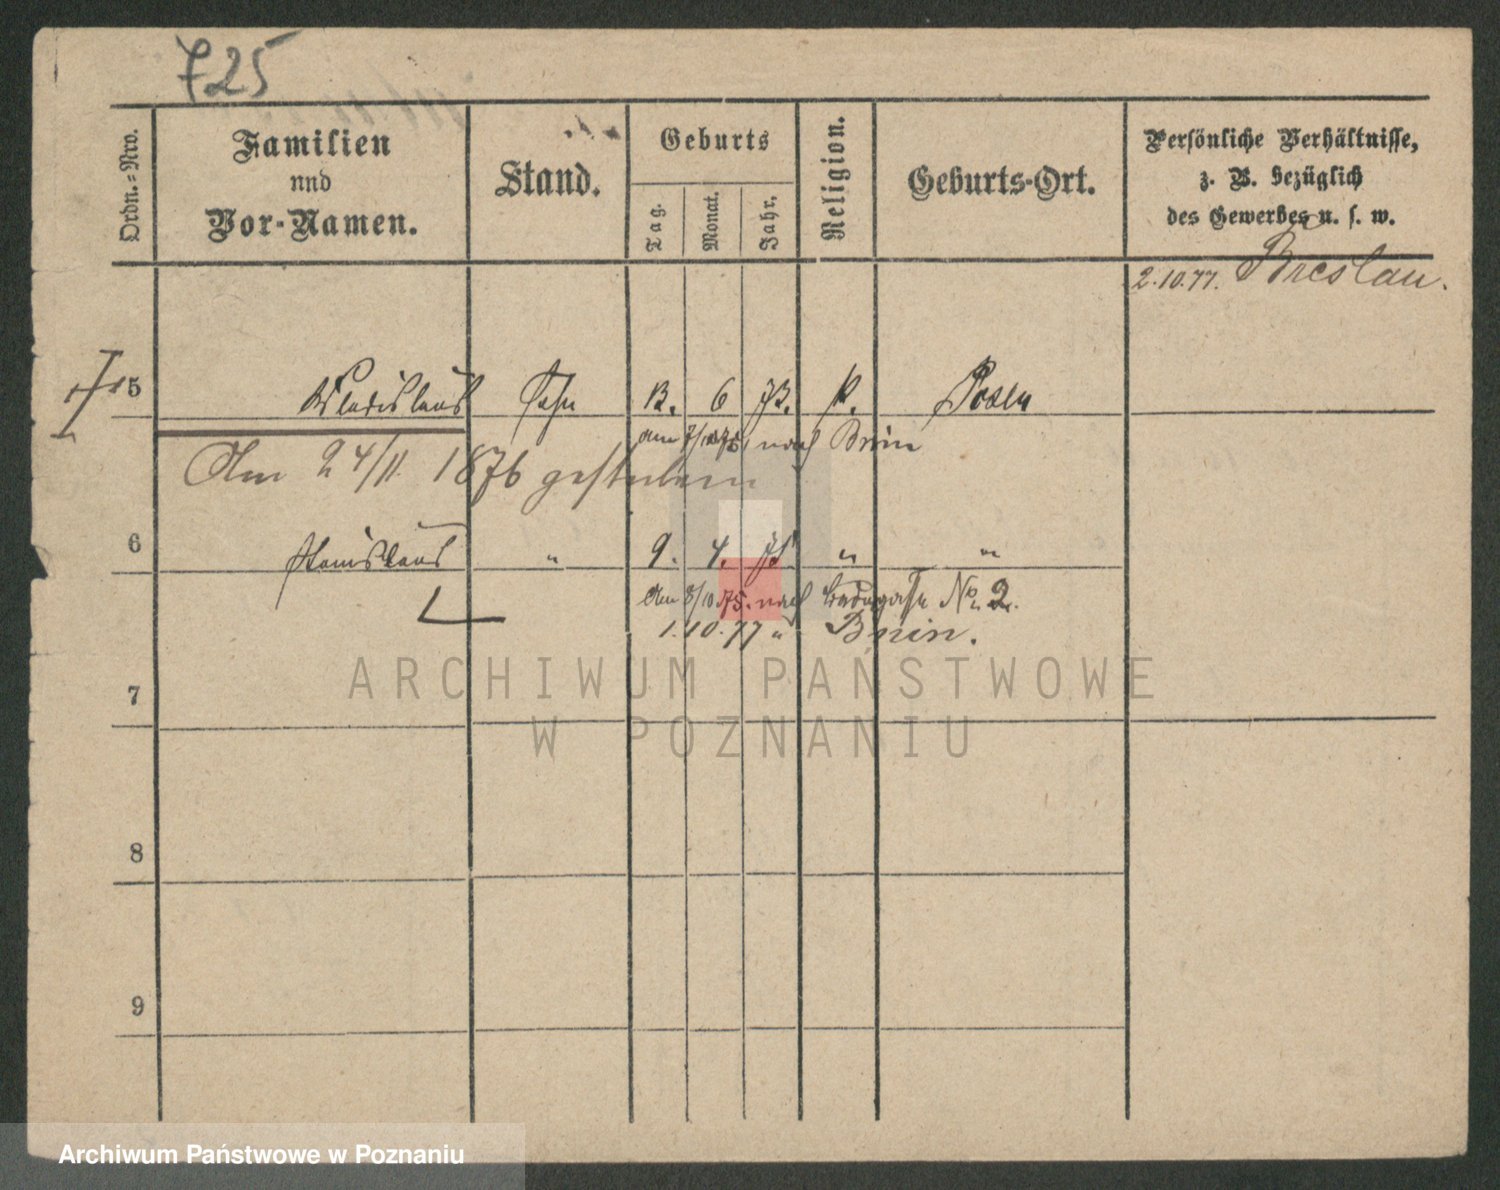 725
Ordn.-Nro.
Familien
und
Vor-Namen.
Stand.
Geburts
Tag.
Monat.
Jahr.
Religion.
Geburts-Ort.
Persönliche Verhältnisse,
z. B. bezüglich
des Gewerbes u. s. w.
2.10.77. Breslau.
5 Wladislaus Sohn 13. 6 73. k. Posen
am 7/10 75. nach Bnin
Am 24/11. 1876 gestorben
6 Stanislaus " 9. 4. 75 " "
Am 8/10 75. nach No 2.
1.10.77 " Bnin.
7
8
9
ARCHIWUM PAŃSTWOWE
W POZNANIU
Archiwum Państwowe w Poznaniu